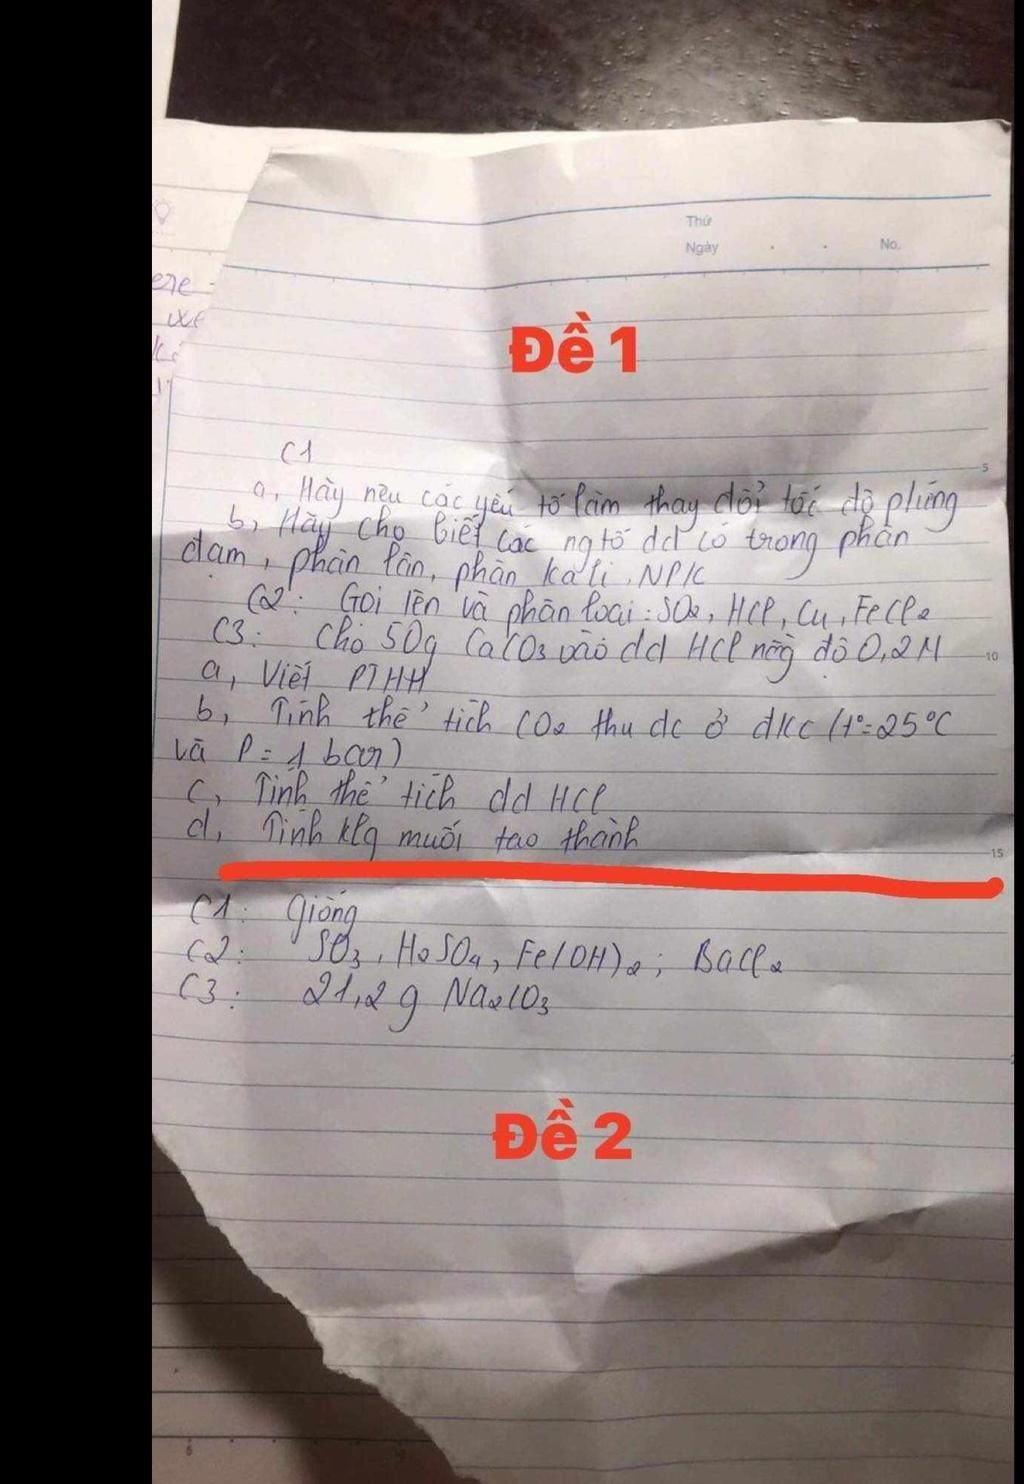 Thứ
Ngày . . No.
Đề 1
C1
a, Hãy nêu các yếu tố làm thay đổi tốc độ phứng
b, Hãy cho biết các ng tố dd có trong phân
đạm, phân lân, phân kali, NPK
C2: Gọi tên và phân loại: SO2, HCl, Cu, FeCl2
C3: Cho 50g CaCO3 vào dd HCl nồng độ 0,2M
a, Viết PTHH
b, Tính thể tích CO2 thu dc ở đkc (t°=25°C
và P = 1 bar)
c, Tính thể tích dd HCl
d, Tính klg muối tạo thành
C1: Giống
C2: SO3, H2SO4, Fe(OH)2; BaCl2
C3: 21,2 g Na2CO3
Đề 2
5
10
15